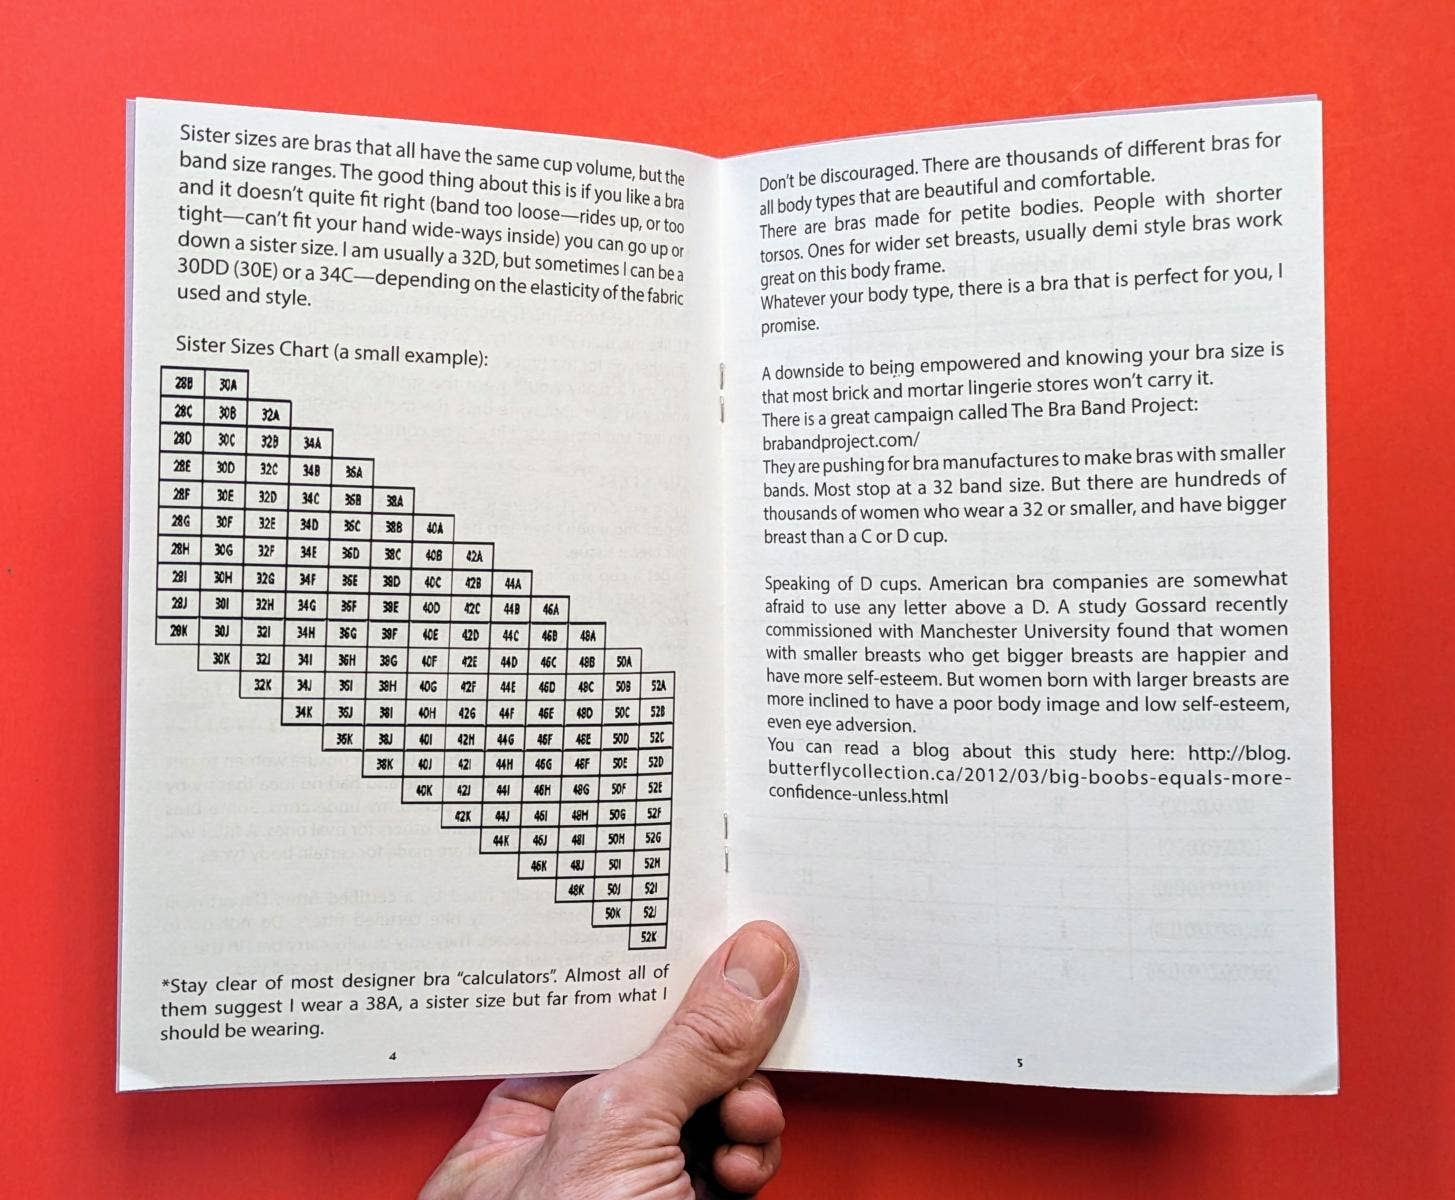 Sister sizes are bras that all have the same cup volume, but the
band size ranges. The good thing about this is if you like a bra
and it doesn't quite fit right (band too loose—rides up, or too
tight—can't fit your hand wide-ways inside) you can go up or
down a sister size. I am usually a 32D, but sometimes I can be a
30DD (30E) or a 34C—depending on the elasticity of the fabric
used and style.
Sister Sizes Chart (a small example):
28B 30A
28C 30B 32A
28D 30C 32B 34A
28E 30D 32C 34B 36A
28F 30E 32D 34C 36B 38A
28G 30F 32E 34D 36C 38B 40A
28H 30G 32F 34E 36D 38C 40B 42A
28I 30H 32G 34F 36E 38D 40C 42B 44A
28J 30I 32H 34G 36F 38E 40D 42C 44B 46A
28K 30J 32I 34H 36G 38F 40E 42D 44C 46B 48A
30K 32J 34I 36H 38G 40F 42E 44D 46C 48B 50A
32K 34J 36I 38H 40G 42F 44E 46D 48C 50B 52A
34K 36J 38I 40H 42G 44F 46E 48D 50C 52B
36K 38J 40I 42H 44G 46F 48E 50D 52C
38K 40J 42I 44H 46G 48F 50E 52D
40K 42J 44I 46H 48G 50F 52E
42K 44J 46I 48H 50G 52F
44K 46J 48I 50H 52G
46K 48J 50I 52H
48K 50J 52I
50K 52J
52K
*Stay clear of most designer bra "calculators". Almost all of
them suggest I wear a 38A, a sister size but far from what I
should be wearing.
4
Don't be discouraged. There are thousands of different bras for
all body types that are beautiful and comfortable.
There are bras made for petite bodies. People with shorter
torsos. Ones for wider set breasts, usually demi style bras work
great on this body frame.
Whatever your body type, there is a bra that is perfect for you, I
promise.
A downside to being empowered and knowing your bra size is
that most brick and mortar lingerie stores won't carry it.
There is a great campaign called The Bra Band Project:
brabandproject.com/
They are pushing for bra manufactures to make bras with smaller
bands. Most stop at a 32 band size. But there are hundreds of
thousands of women who wear a 32 or smaller, and have bigger
breast than a C or D cup.
Speaking of D cups. American bra companies are somewhat
afraid to use any letter above a D. A study Gossard recently
commissioned with Manchester University found that women
with smaller breasts who get bigger breasts are happier and
have more self-esteem. But women born with larger breasts are
more inclined to have a poor body image and low self-esteem,
even eye adversion.
You can read a blog about this study here: http://blog.
butterflycollection.ca/2012/03/big-boobs-equals-more-
confidence-unless.html
5